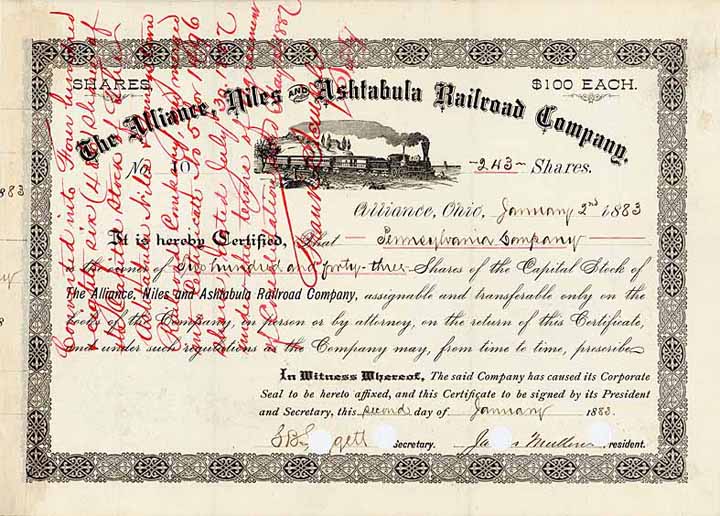 SHARES
$100 EACH.
The Alliance, Niles AND Ashtabula Railroad Company.
No. 10
243 Shares.
Alliance, Ohio, January 2nd 1883
It is hereby Certified, That Pennsylvania Company
the owner of Two hundred and forty-three Shares of the Capital Stock of
The Alliance, Niles and Ashtabula Railroad Company, assignable and transferable only on the
books of the Company, in person or by attorney, on the return of this Certificate,
and under such regulations as the Company may, from time to time, prescribe
In Witness Whereof, The said Company has caused its Corporate
Seal to be hereto affixed, and this Certificate to be signed by its President
and Secretary, this second day of January 1883.
Secretary.
resident.
Converted into Four hundred
eighty six (486) shares of
the Capital Stock of the
Ashtabula Niles
Railroad Company, merged
into Certificate No 5 for
Shares dated July 30 1887
under the terms of Agreement
of Consolidation dated May 1887
1883